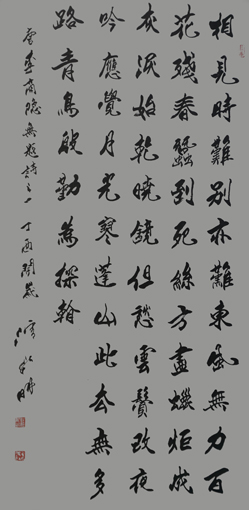 相見時難別亦難東風無力百
花殘春蠶到死絲方盡蠟炬成
灰泪始乾曉鏡但愁雲鬢改夜
吟應覺月光寒蓬山此去無多
路青鳥殷勤為探看
李商隱無題詩之一丁酉閏歲